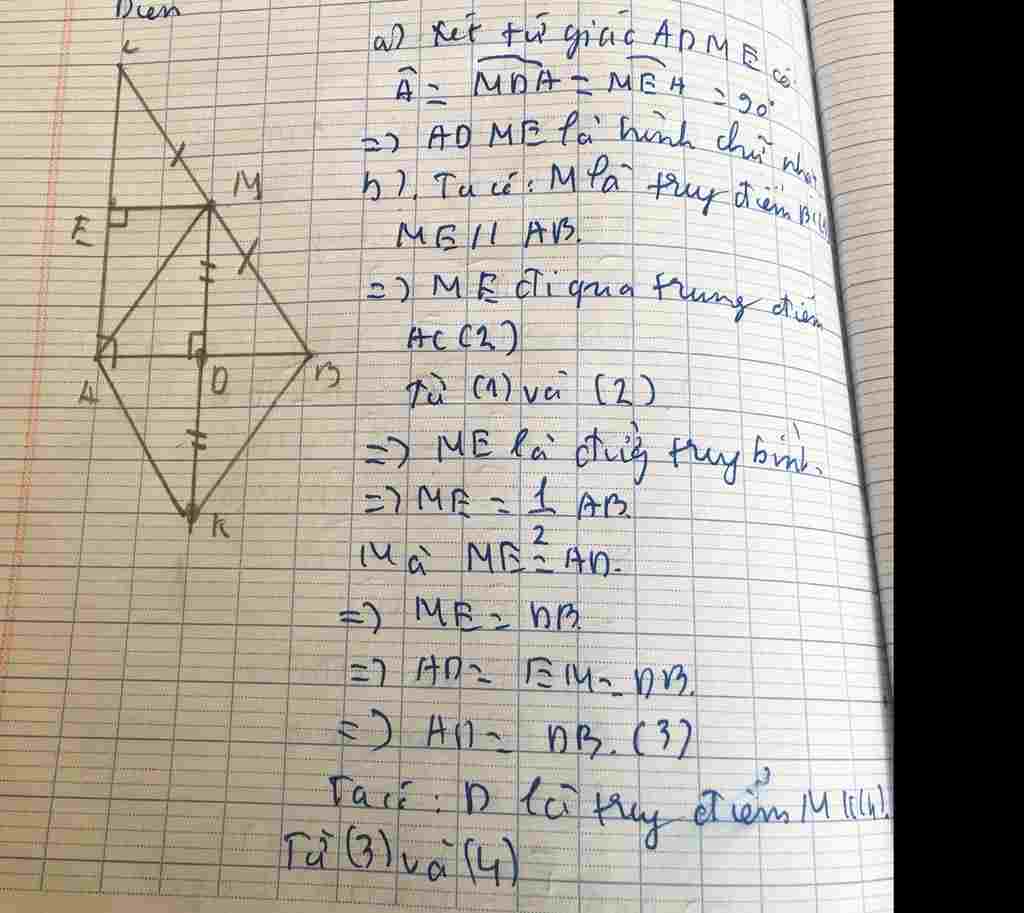 a) Xét tứ giác ADME có
Â = MDA = MEA = 90°
=> ADME là hình chữ nhật
b). Ta có: M là trug điểm BC(1)
ME // AB.
=> ME đi qua trung điểm
AC (2)
Từ (1) và (2)
=> ME là đường trug bình.
=> ME = 1/2 AB.
Mà ME = AD.
=> ME = DB
=> AD = EM = DB.
=> AD = DB. (3)
Ta có: D là trug điểm MK(4).
Từ (3) và (4)
C
M
E
A
D
B
K